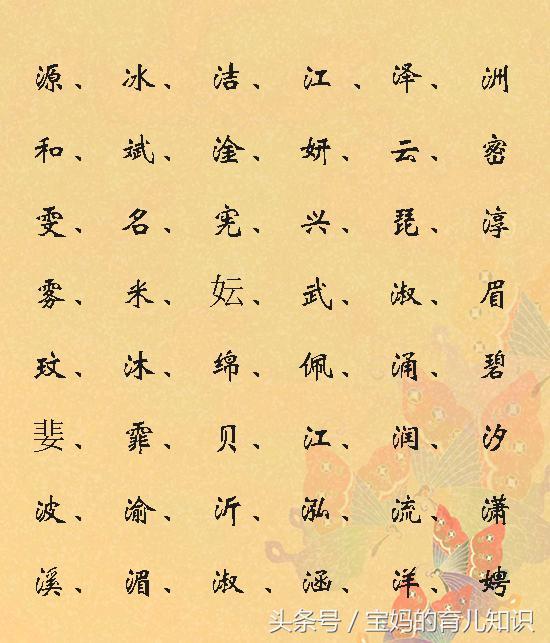 源、冰、洁、江、泽、洲
和、斌、淦、妍、云、密
雯、名、宪、兴、琵、淳
雾、米、妘、武、淑、眉
玟、沐、绵、佩、涌、碧
婓、霏、贝、江、润、汐
波、渝、沂、泓、流、潇
溪、湄、淑、涵、洋、娉
头条号/宝妈的育儿知识